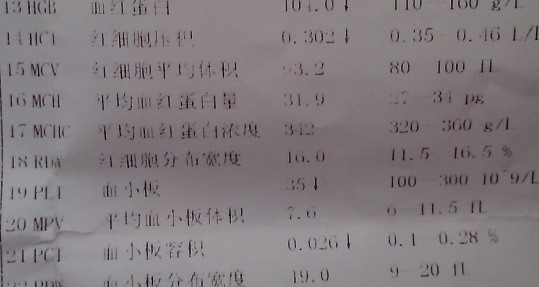 13 HGB 血红蛋白 104.0↓ 110 160 g/L
14 HCT 红细胞压积 0.302↓ 0.35 0.46 L/L
15 MCV 红细胞平均体积 3.2 80 100 fL
16 MCH 平均血红蛋白量 31.9 27 34 pg
17 MCHC 平均血红蛋白浓度 342 320 360 g/L
18 RDW 红细胞分布宽度 16.0 11.5 16.5 %
19 PLT 血小板 35↓ 100 300 10^9/L
20 MPV 平均血小板体积 7.6 6 11.5 fL
21 PCT 血小板容积 0.026↓ 0.1 0.28 %
血小板分布宽度 19.0 9 20 fl